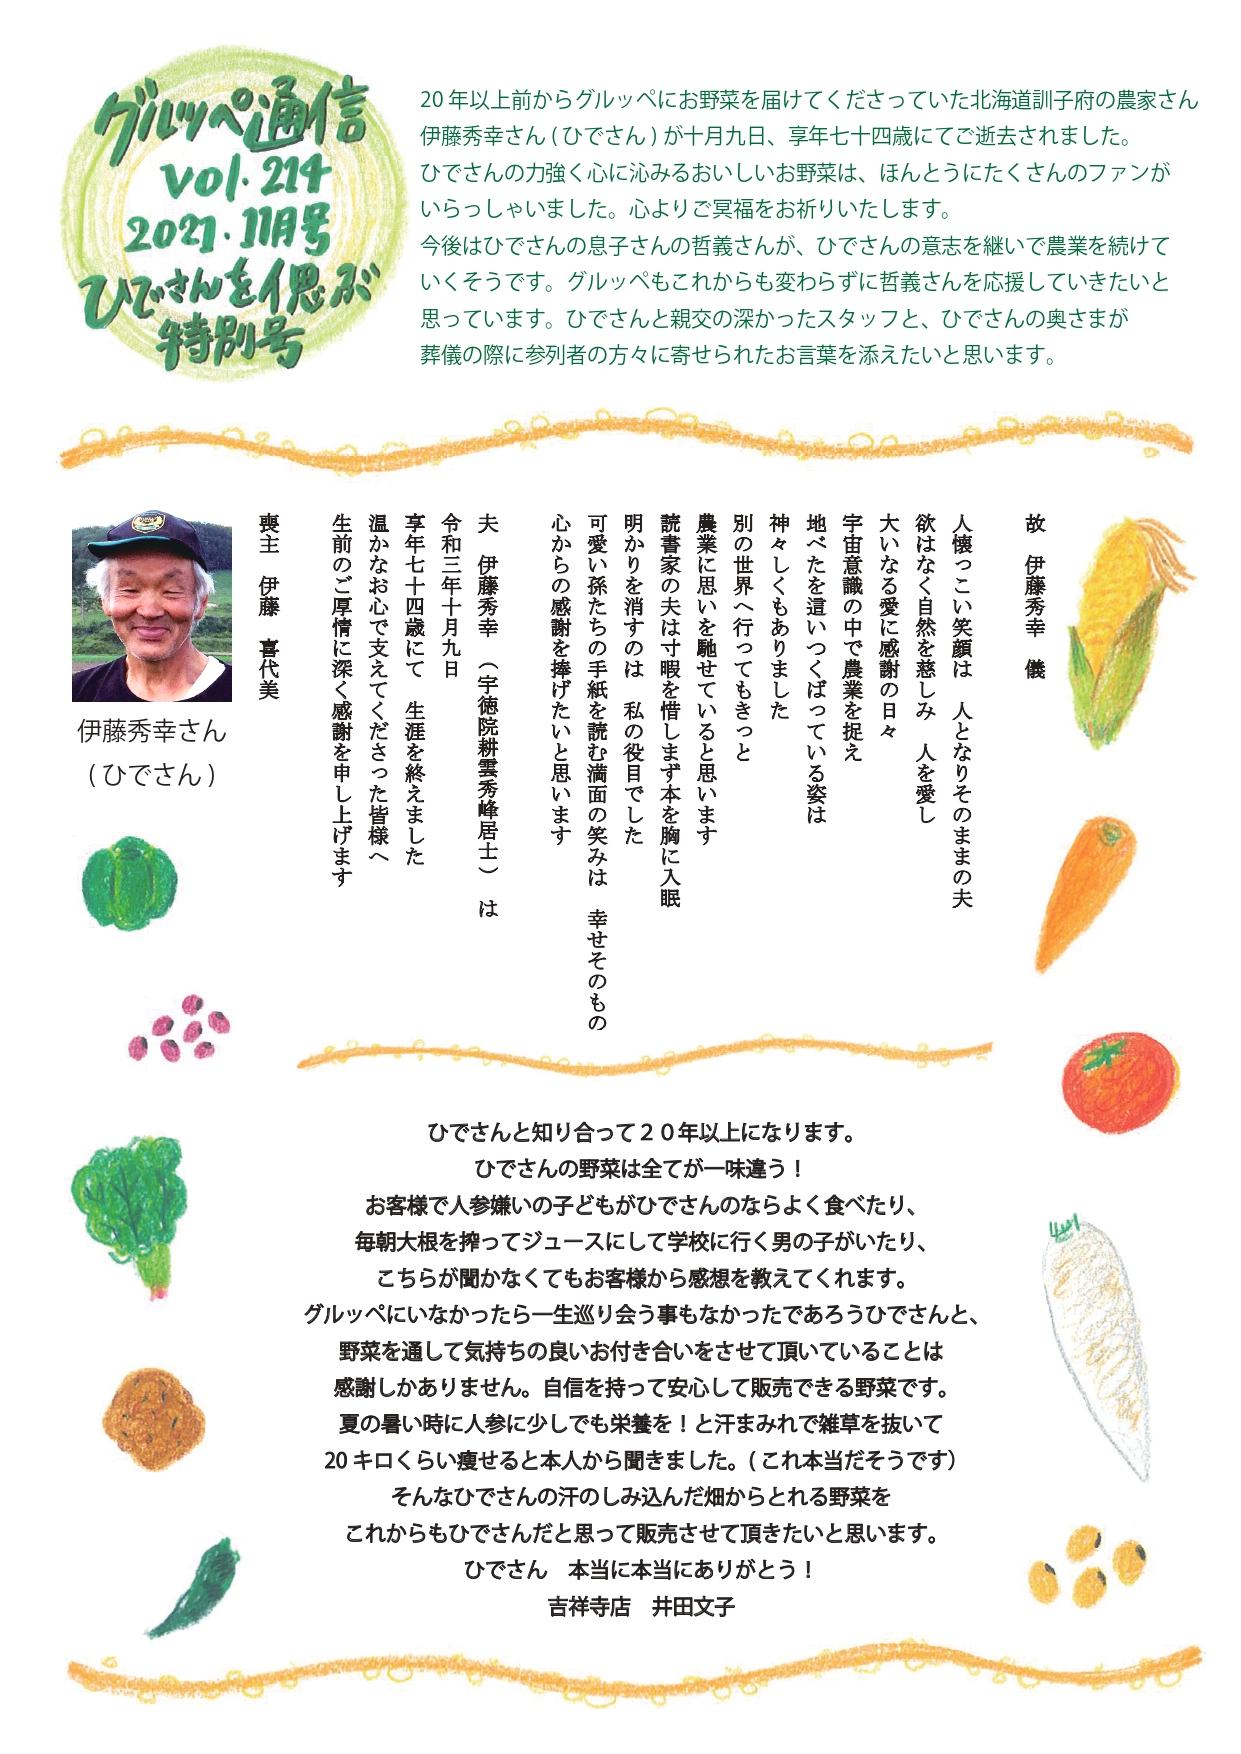 グルッペ通信
vol.214
2021.11月号
ひでさんを偲ぶ
特別号
20年以上前からグルッペにお野菜を届けてくださっていた北海道訓子府の農家さん
伊藤秀幸さん(ひでさん)が十月九日、享年七十四歳にてご逝去されました。
ひでさんの力強く心に沁みるおいしいお野菜は、ほんとうにたくさんのファンが
いらっしゃいました。心よりご冥福をお祈りいたします。
今後はひでさんの息子さんの哲義さんが、ひでさんの意志を継いで農業を続けて
いくそうです。グルッペもこれからも変わらずに哲義さんを応援していきたいと
思っています。ひでさんと親交の深かったスタッフと、ひでさんの奥さまが
葬儀の際に参列者の方々に寄せられたお言葉を添えたいと思います。
故　伊藤秀幸　儀
人懐っこい笑顔は　人となりそのままの夫
欲はなく自然を慈しみ　人を愛し
大いなる愛に感謝の日々
宇宙意識の中で農業を捉え
地べたを這いつくばっている姿は
神々しくもありました
別の世界へ行ってもきっと
農業に思いを馳せていると思います
読書家の夫は寸暇を惜しまず本を胸に入眠
明かりを消すのは　私の役目でした
可愛い孫たちの手紙を読む満面の笑みは　幸せそのもの
心からの感謝を捧げたいと思います
夫　伊藤秀幸　（宇徳院耕雲秀峰居士）　は
令和三年十月九日
享年七十四歳にて　生涯を終えました
温かなお心で支えてくださった皆様へ
生前のご厚情に深く感謝を申し上げます
喪主　伊藤　喜代美
伊藤秀幸さん
(ひでさん)
ひでさんと知り合って２０年以上になります。
ひでさんの野菜は全てが一味違う！
お客様で人参嫌いの子どもがひでさんのならよく食べたり、
毎朝大根を搾ってジュースにして学校に行く男の子がいたり、
こちらが聞かなくてもお客様から感想を教えてくれます。
グルッペにいなかったら一生巡り会う事もなかったであろうひでさんと、
野菜を通して気持ちの良いお付き合いをさせて頂いていることは
感謝しかありません。自信を持って安心して販売できる野菜です。
夏の暑い時に人参に少しでも栄養を！と汗まみれで雑草を抜いて
20キロくらい痩せると本人から聞きました。(これ本当だそうです)
そんなひでさんの汗のしみ込んだ畑からとれる野菜を
これからもひでさんだと思って販売させて頂きたいと思います。
ひでさん　本当に本当にありがとう！
吉祥寺店　井田文子